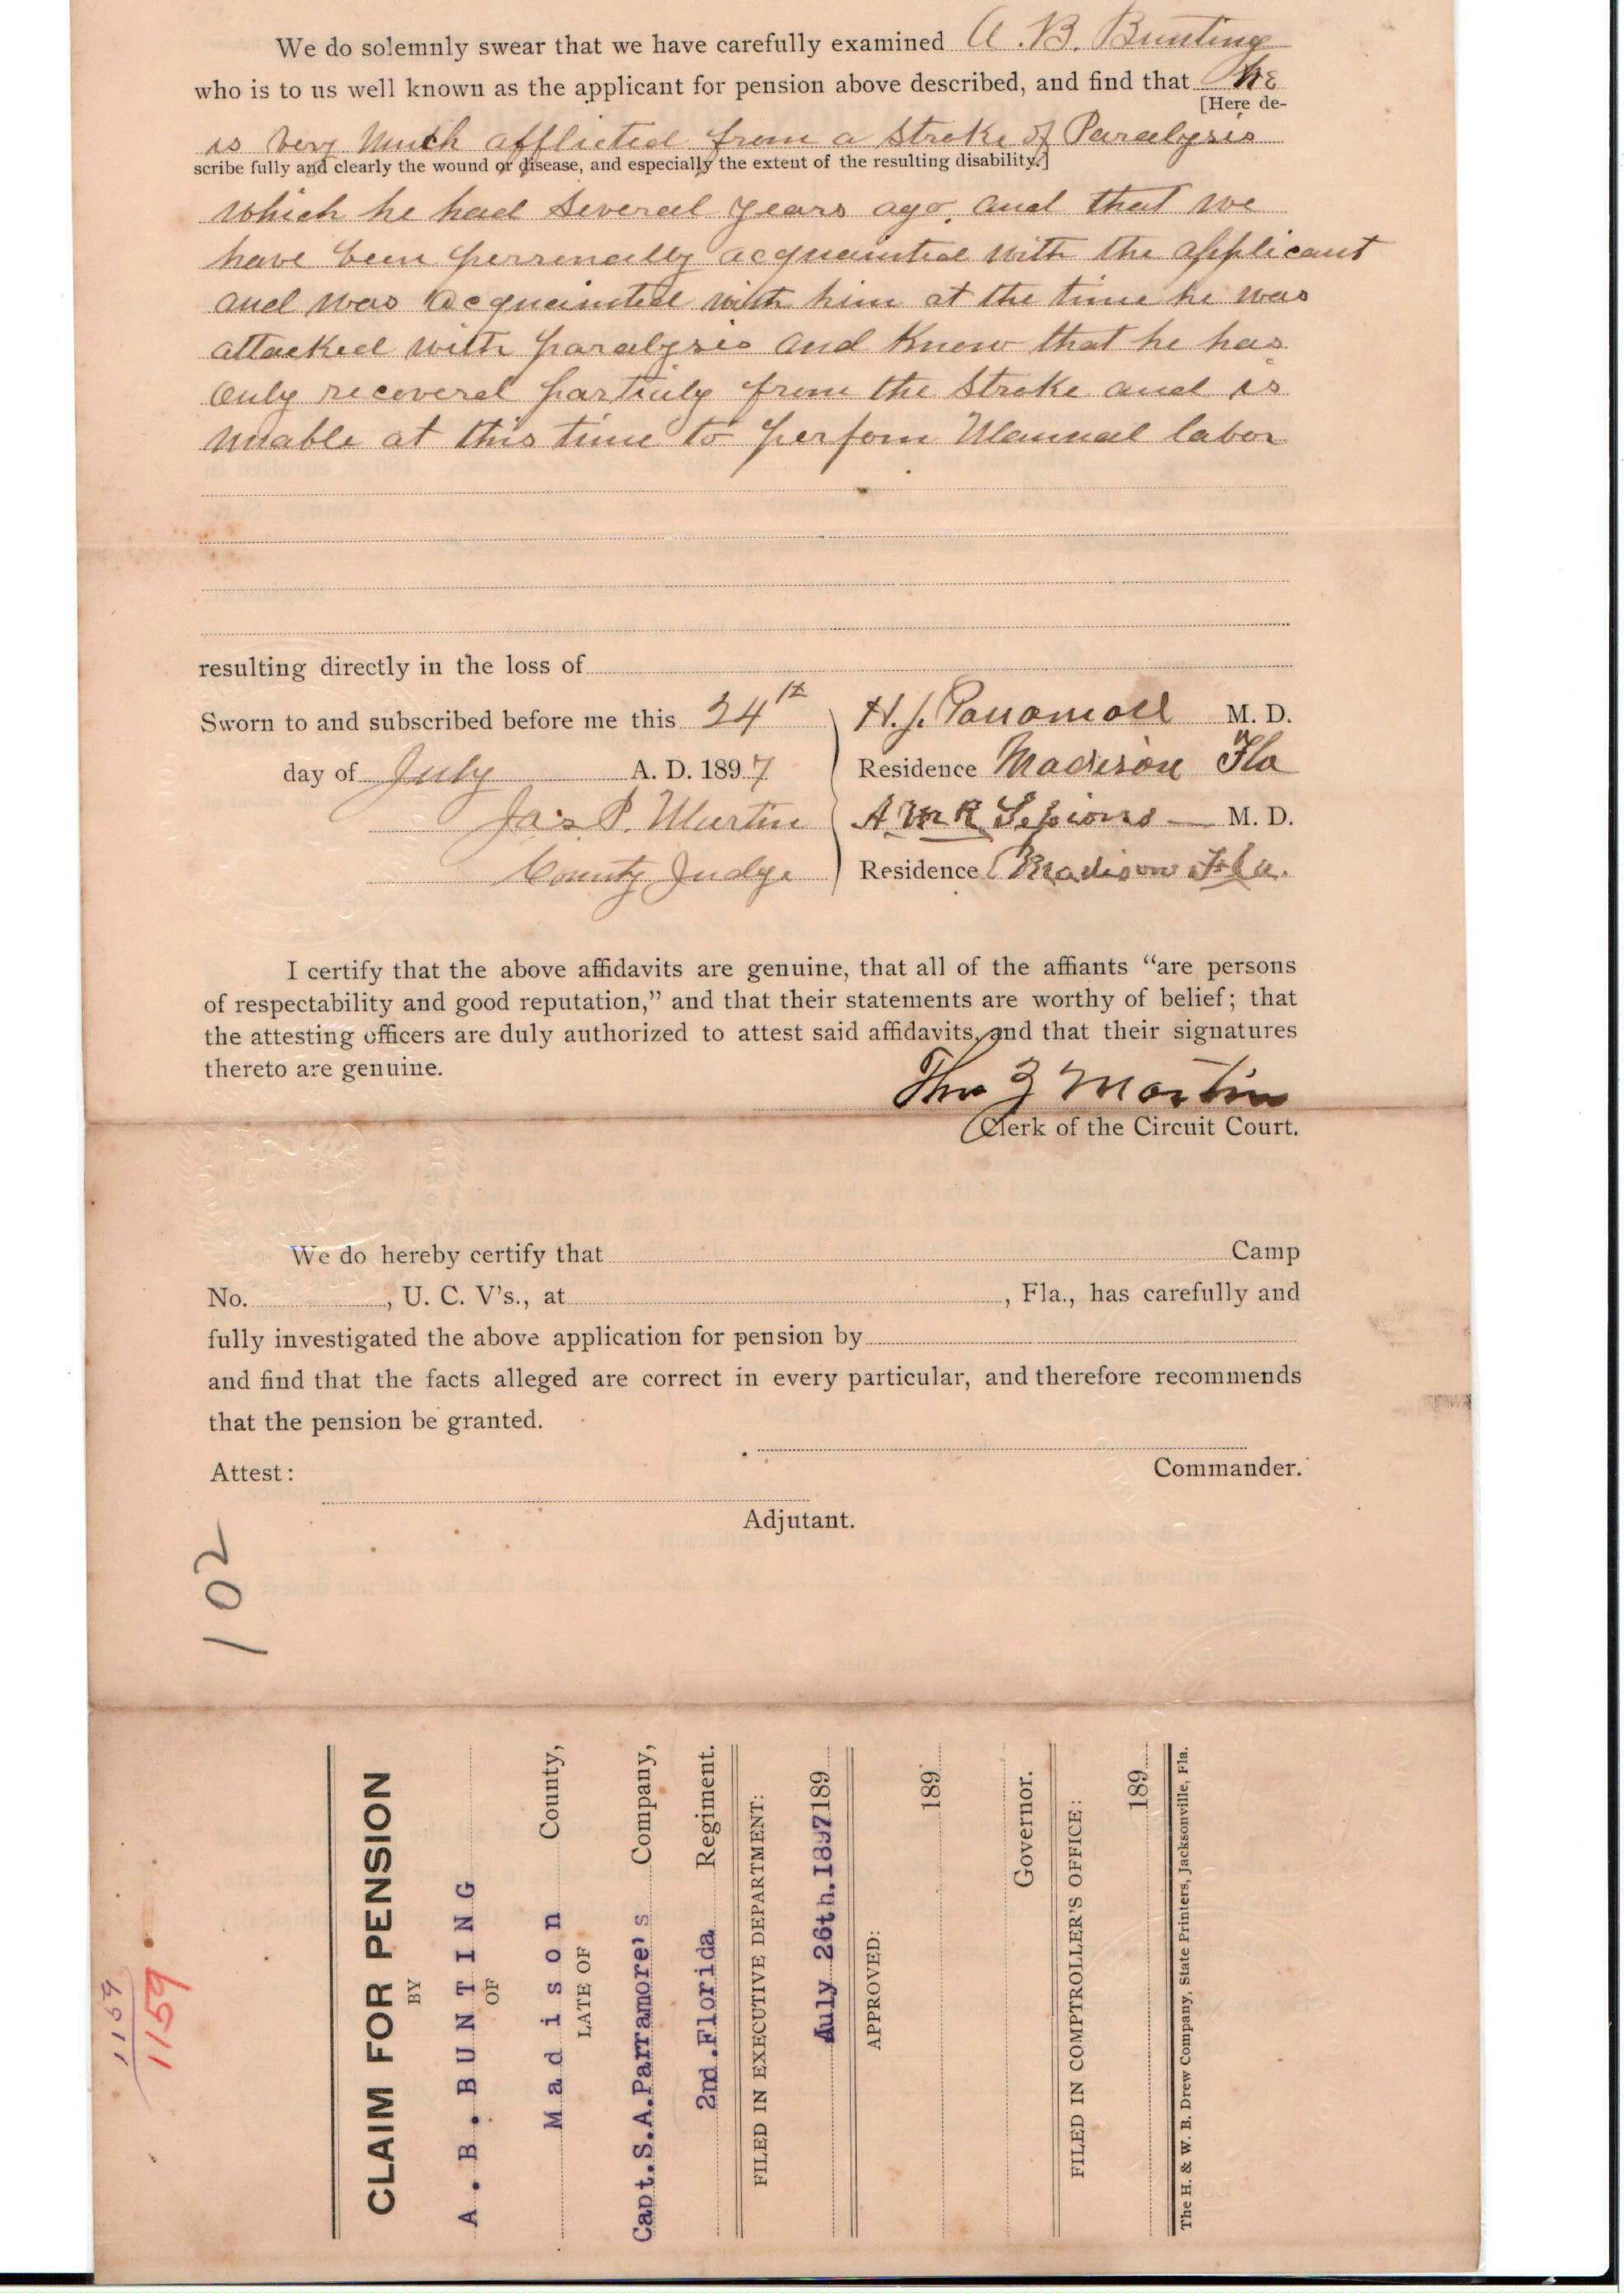 We do solemnly swear that we have carefully examined A. B. Bunting
who is to us well known as the applicant for pension above described, and find that he
[Here de-
is very much afflicted from a stroke of Paralysis
scribe fully and clearly the wound or disease, and especially the extent of the resulting disability.]
which he had several years ago. and that we
have been personally acquainted with the applicant
and was acquainted with him at the time he was
attacked with paralysis and know that he has
only recovered partialy from the stroke and is
unable at this time to perfom Manual labor
resulting directly in the loss of
Sworn to and subscribed before me this 24th
day of July A. D. 1897
Jas P. Martin
County Judge
H. J. M. D.
Residence Madison Fla
A M R Sessions — M. D.
Residence Madison Fla.
I certify that the above affidavits are genuine, that all of the affiants “are persons
of respectability and good reputation,” and that their statements are worthy of belief; that
the attesting officers are duly authorized to attest said affidavits, and that their signatures
thereto are genuine.
Martin
Clerk of the Circuit Court.
We do hereby certify that Camp
No. , U. C. V's., at , Fla., has carefully and
fully investigated the above application for pension by
and find that the facts alleged are correct in every particular, and therefore recommends
that the pension be granted.
Commander.
Attest:
Adjutant.
102
1159
1159
CLAIM FOR PENSION
BY
A. B. BUNTING
OF
Madison County,
LATE OF
Capt. S. A. Parramore's Company,
2nd. Florida Regiment.
FILED IN EXECUTIVE DEPARTMENT:
July 26th. 1897 189
APPROVED:
189
Governor.
FILED IN COMPTROLLER'S OFFICE:
189
The H. & W. B. Drew Company, State Printers, Jacksonville, Fla.